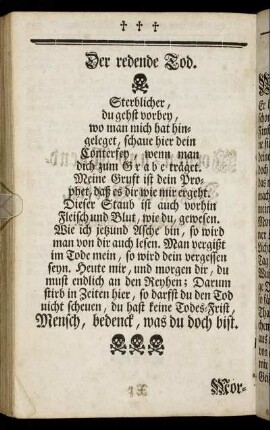 † † †
Der redende Tod.
Sterblicher,
du gehst vorbey,
wo man mich hat hin-
geleget, schaue hier dein
Conterfey, wenn man
dich zum Grabe träget.
Meine Gruft ist dein Pro-
phet, daß es dir wie mir ergeht.
Dieser Staub ist auch vorhin
Fleisch und Blut, wie du, gewesen.
Wie ich jetzund Asche bin, so wird
man von dir auch lesen. Man vergißt
im Tode mein, so wird dein vergessen
seyn. Heute mir, und morgen dir, du
must endlich an den Reyhen; Darum
stirb in Zeiten hier, so darfst du den Tod
nicht scheuen, du hast keine Todes-Frist,
Mensch, bedenck, was du doch bist.
Mor-